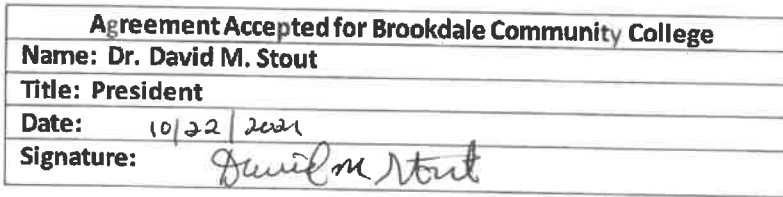 Agreement Accepted for Brookdale Community College
Name: Dr. David M. Stout
Title: President
Date: 10/22/2021
Signature: David M Stout